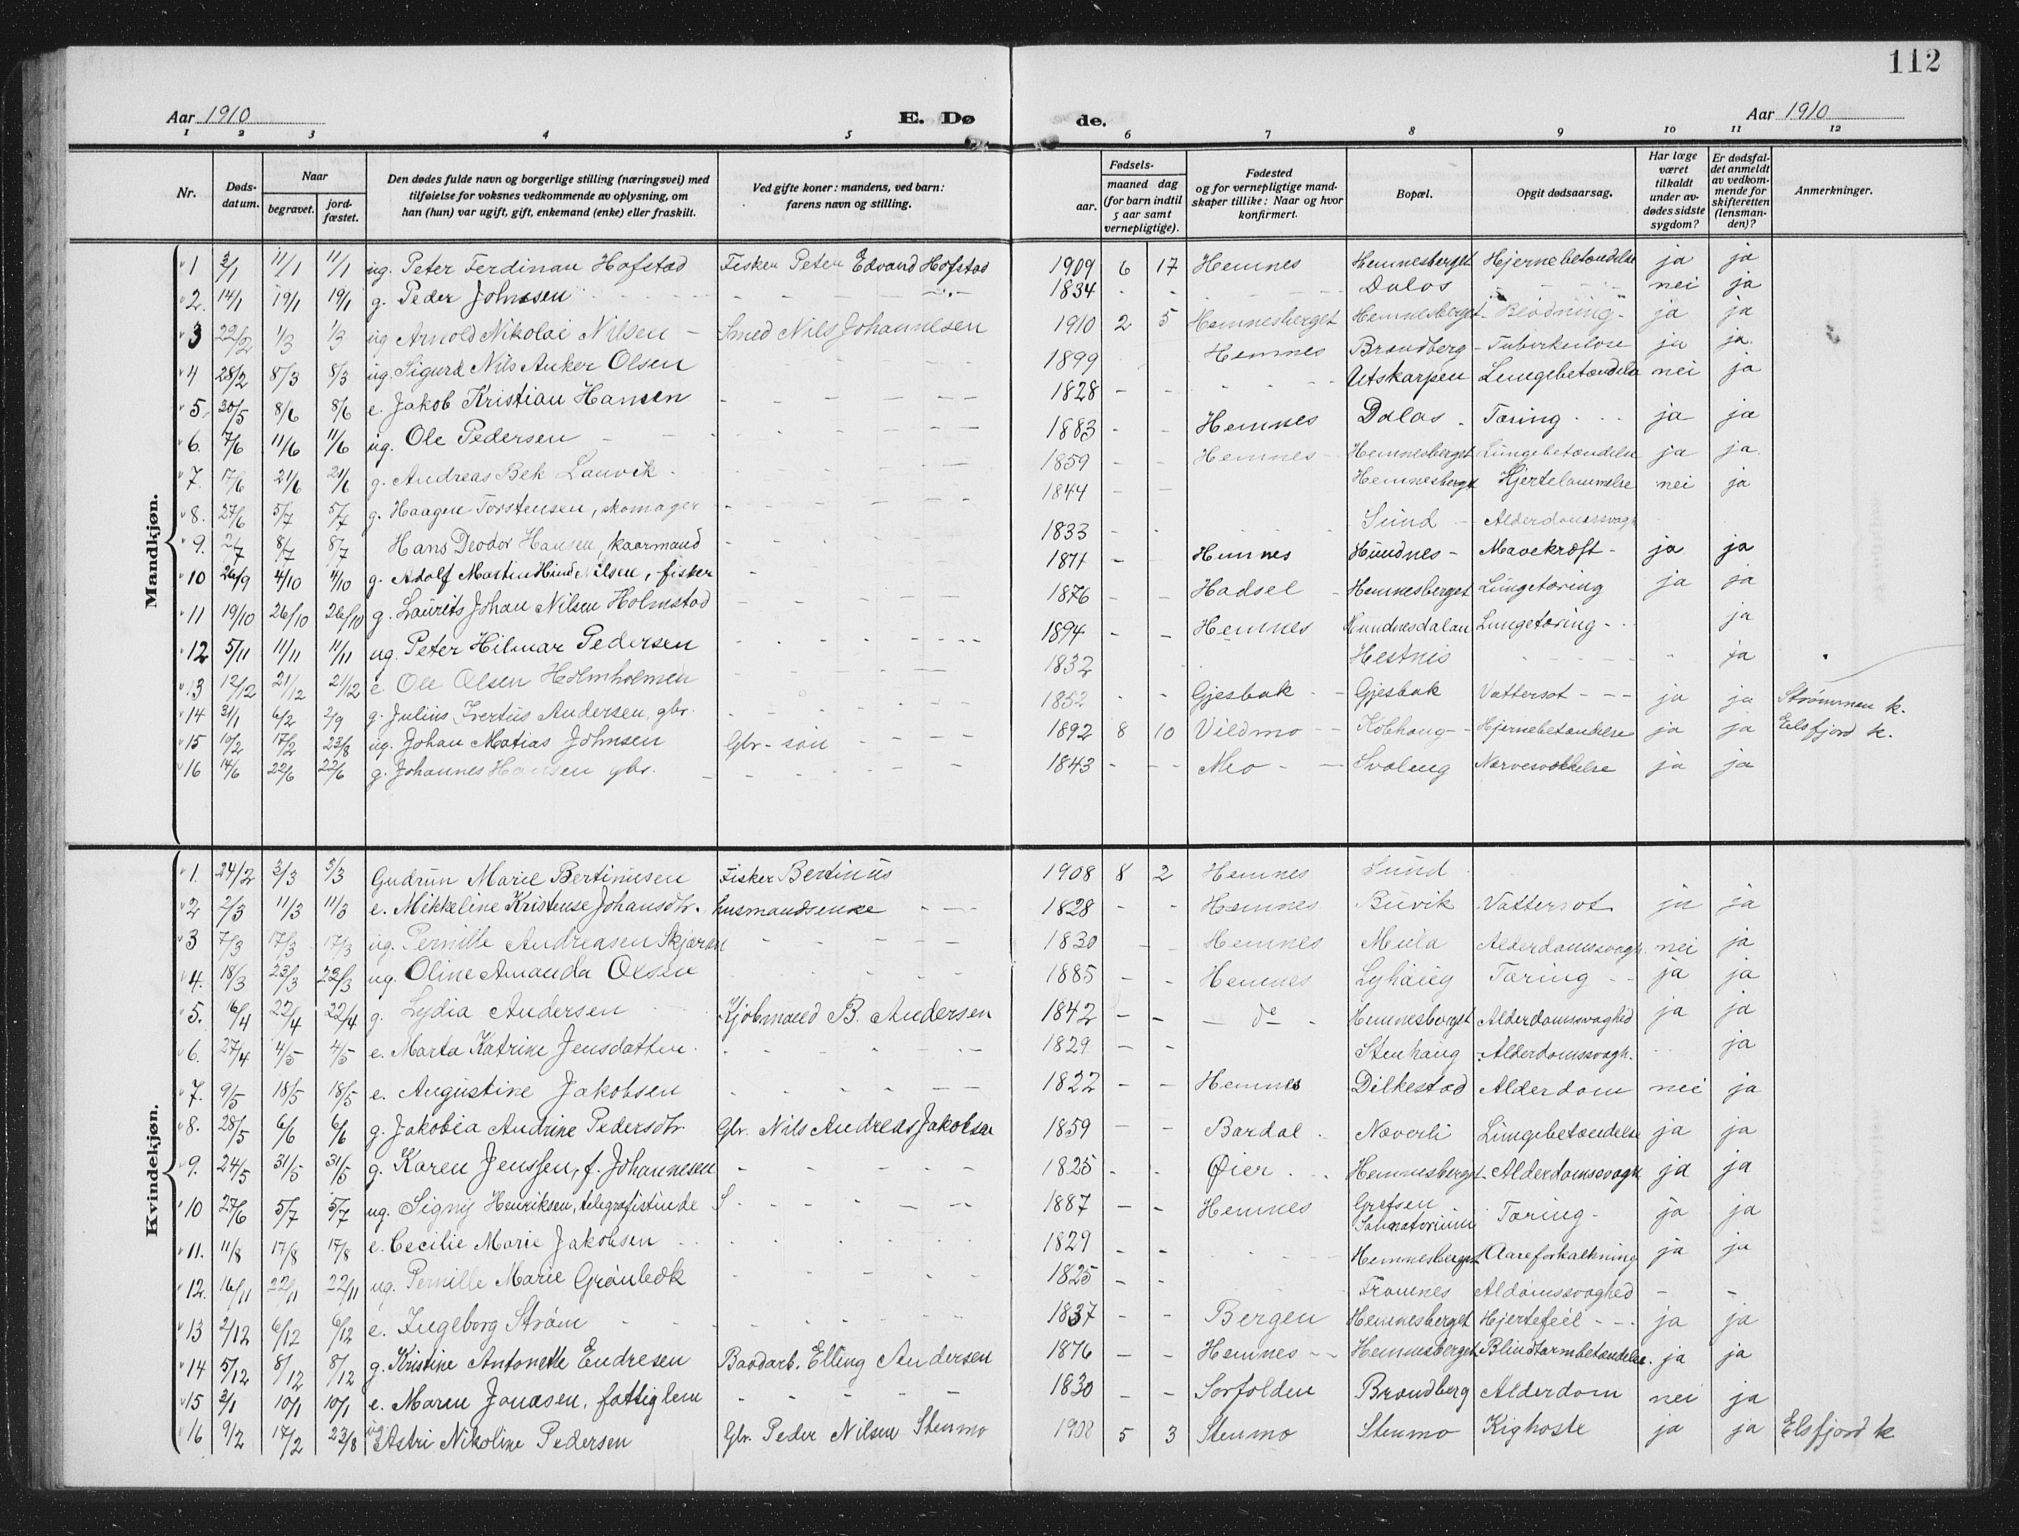 112
Aar 1910 E. Dø de. Aar 1910
1 2 3 4 5 6 7 8 9 10 11 12
Nr. Døds-datum. Naar begravet. jord-fæstet. Den dødes fulde navn og borgerlige stilling (næringsvei) med tilføielse for voksnes vedkommende av oplysning, om han (hun) var ugift, gift, enkemand (enke) eller fraskilt. Ved gifte koner: mandens, ved barn: farens navn og stilling. Fødsels- aar. maaned dag (for barn indtil 5 aar samt vernepligtige). Fødested og for vernepligtige mand-skaper tillike: Naar og hvor konfirmert. Bopæl. Opgit dødsaarsag. Har læge været tilkaldt under av-dødes sidste sygdom? Er dødsfal-det anmeldt av vedkom-mende for skifteretten (lensman-den)? Anmerkninger.
Mandkjøn.
1 3/1 11/1 11/1 ug. Peter Ferdinan Hofstad Fisker Peter Edvard Hofstad 1909 6 17 Hemnes Hemnesberget Hjernebetændelse ja ja
2. 14/1 19/1 19/1 g. Peder Johnsen 1834 Dalos nei ja
3 22/2 1/3 1/3 ug Arnold Nikolai Nilsen Smed Nils Johannesen 1910 2 5 Hemnesberget Hemnesberget Blødning ja ja
4 28/2 8/3 8/3 ug. Sigurd Nils Anker Olsen 1899 Hemnes Brandberg Tuberkulose ja ja.
5. 20/5 8/6 8/6 e. Jakob Kristian Hansen 1828 Utskarpen Lungebetændelse nei ja
6. 7/6 11/6 11/6 ug. Ole Pedersen 1883 Hemnes Dalos Tæring ja ja
7. 17/6 21/6 21/6 g. Andreas Bek Lauvik 1859 Hemnes Hemnesberget Lungebetændelse ja ja.
8. 27/6 5/7 5/7 g. Haagen Torstensen, skomager 1844 Hemnesberget Hjertelammelse nei ja
9. 2/7 8/7 8/7 Hans Deodor Hansen, kaarmand 1833 Sund Alderdomssvagh
10 26/9 4/10 4/10 g. Adolf Martin Hind Nilsen, fisker 1871 Hemnes Hundnes Mavekræft ja ja
11 19/10 26/10 26/10 g. Laurits Johan Nilsen Holmstad 1876 Hadsel Hemnesberget Lungetæring ja ja
12 5/11 11/11 11/11 ug. Peter Hilmar Pedersen 1894 Hemnes Hundnesdalen Lungetæring ja
13 12/12 21/12 21/12 e Ole Olsen Holmholmen 1832 Hestnis ja
14 31/1 6/2 2/9 g. Julius Ivertus Andersen, gbr. 1852 Gjesbak Gjesbak Vattersot ja ja Strømmen k.
15 10/2 17/2 23/8 ug. Johan Matias Johnsen Gbr-søn 1892 8 10 Vildmo Kobhaug Hjernebetændelse ja ja Elsfjord k.
16 14/6 22/6 22/6 g. Johannes Hansen gbr. 1843 Mo Svaleng Nervesvækkelse ja ja
Kvindekjøn.
1. 24/2 3/3 5/3 Gudrun Marie Bertinusen Fisker Bertinus 1908 8 2 Hemnes Sund
2 2/3 11/3 11/3 e. Mikkeline Kristense Johansdtr. husmandsenke 1828 Hemnes Buvik Vattersot ja ja
3 7/3 17/3 17/3 ug. Pernille Andreasen Skjæran 1830 Hemnes Mula Alderdomssvagh. nei ja
4. 18/3 23/3 23/3 ug. Oline Amanda Olsen 1885 Hemnes Lyhaug Tæring ja ja
5. 16/4 22/4 22/4 g. Lydia Andersen Kjøbmand B. Andersen 1842 do Hemnesberget Alderdomssvaghed ja ja
6. 27/4 4/5 4/5 e. Marta Katrine Jensdatter 1829 Stenhaug Alderdomssvagh. ja
7. 9/5 18/5 18/5 e. Augustine Jakobsen 1822 Hemnes Dilkestad Alderdom nei ja
8. 28/5 6/6 6/6 g. Jakobia Andrine Pedersdtr. Gbr. Nils Andreas Jakobsen 1859 Bardal Næverli Lungebetændelse ja ja
9. 24/5 31/5 31/5 g. Karen Jenssen, f. Johannesen 1825 Øier Hemnesberget Alderdomssvagh ja ja
10 27/6 5/7 5/7 ug. Signy Henriksen, telegrafistinde S 1887 Hemnes Grefsen Sanatorium Tæring ja ja
11. 11/8 17/8 17/8 e. Cecilie Marie Jakobsen 1829 Hemnesberget Aareforkalkning ja ja
12. 16/11 22/11 22/11 ug. Pernille Marie Grønbæk 1825 Framnes Aldomssvaghed
13 2/12 6/12 6/12 e. Ingeborg Strøm 1837 Bergen Hemnesberget Hjertefeil ja ja
14 5/12 8/12 8/12 g. Kristine Antonette Endresen Baadarb. Elling Andersen 1876 Hemnes Hemnesberget Blindtarmbetændelse. ja ja
15 3/1 10/1 10/1 e. Maren Jonæsen, fattiglem 1830 Sorfolden Brandberg Alderdom nei ja
16 9/2 17/2 23/8 ug Astri Nikoline Pedersen Gbr. Peder Nilsen Stenmo 1908 5 3 Stenmo Stenmo Kighoste ja ja Elsfjord k